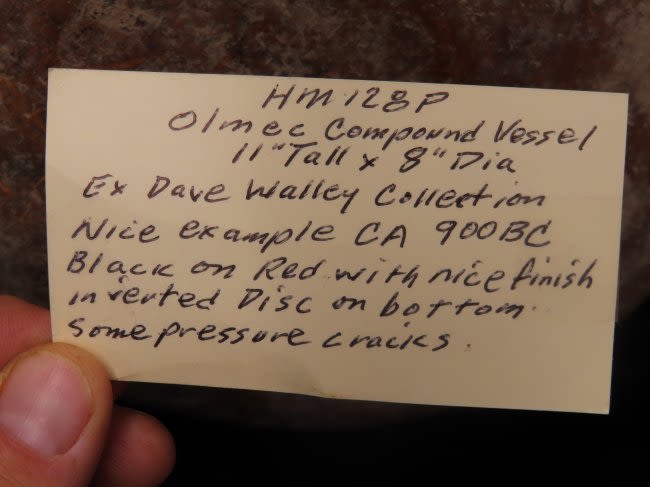 HM128P
Olmec Compound Vessel
11" Tall x 8" Dia
Ex Dave Walley Collection
Nice example CA 900BC
Black on Red with nice finish
inverted Disc on bottom.
Some pressure cracks.